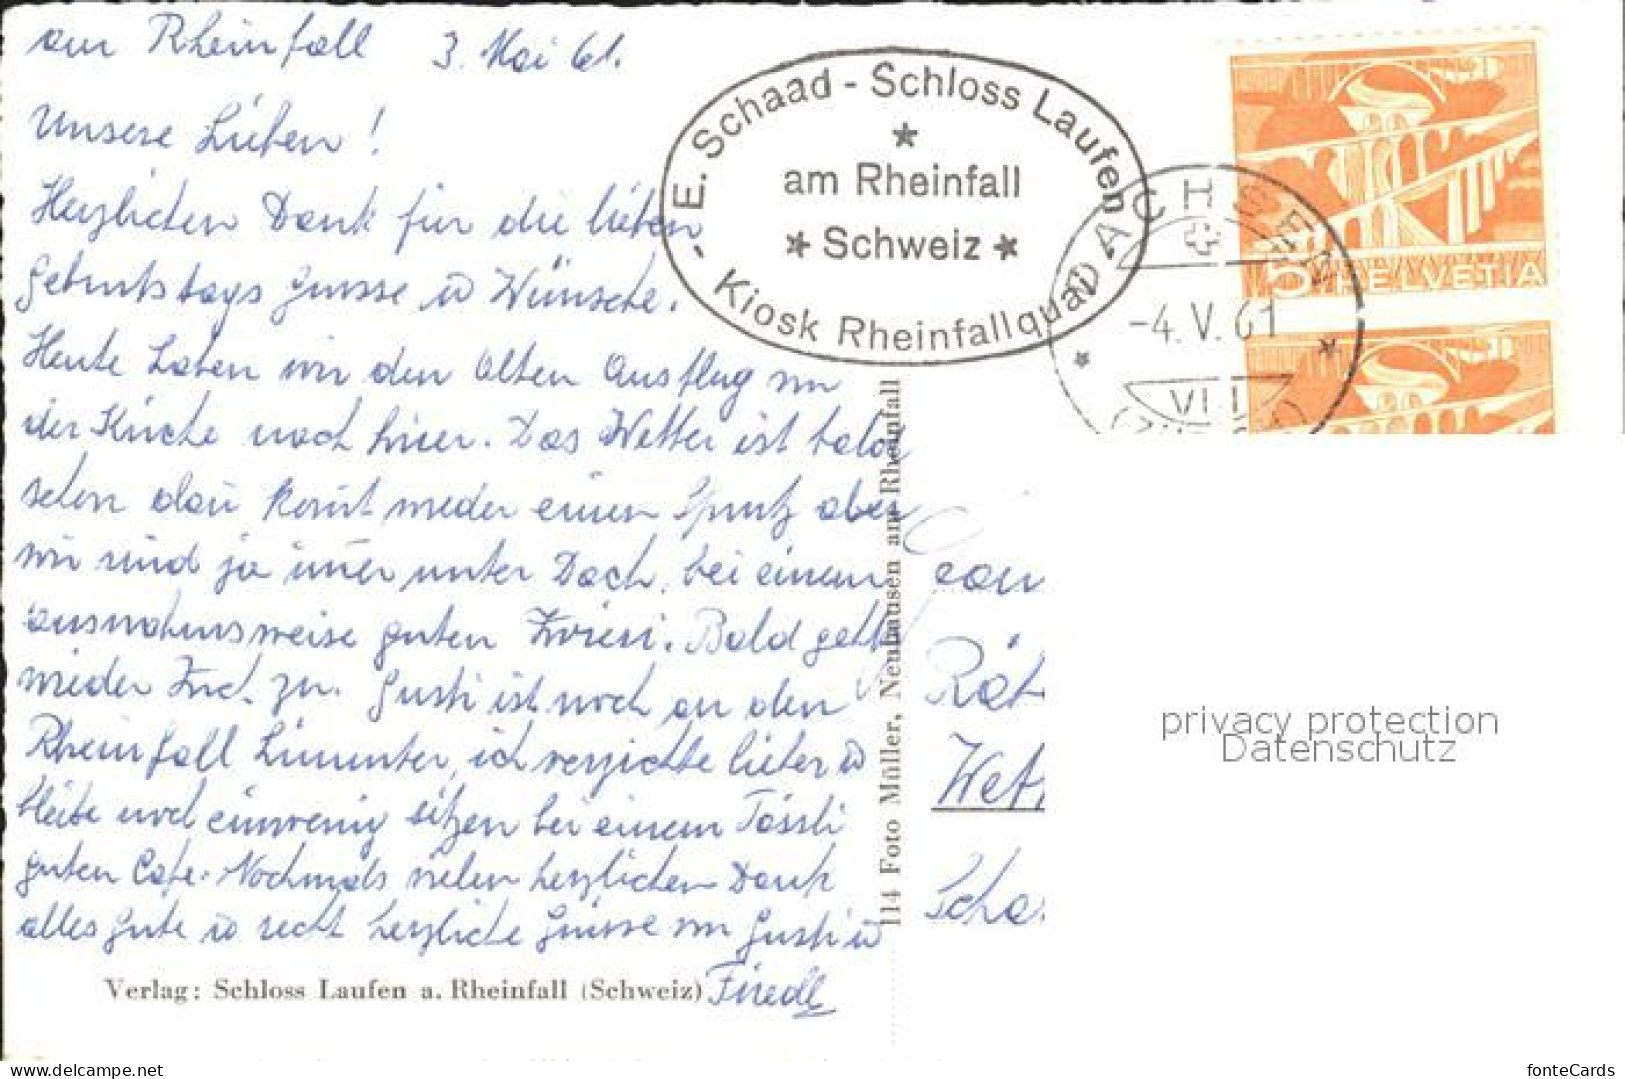 am Rheinfall 3. Mai 61.
Unsere Lieben!
Herzlichen Dank für die lieben
Geburtstags Grüsse u Wünsche.
Heute haben wir den Alten Ausflug von
der Kirche nach hier. Das Wetter ist bald
schön dan komt wieder einen Sprutz aber
wir sind ja imer unter Dach, bei einem
ausnahmsweise guten Zvieri. Bald geht's
wieder Zürich zu. Gusti ist noch an den
Rheinfall hinunter, ich verzichte lieber u
bleibe noch einwenig sitzen bei einem Tässli
guten Cafe. Nochmals vielen herzlichen Dank
alles Gute u recht herzliche Grüsse von Gusti u
Friedl
Verlag: Schloss Laufen a. Rheinfall (Schweiz)
114 Foto Müller, Neuhausen am Rheinfall
E. Schaad - Schloss Laufen
am Rheinfall
* Schweiz *
- Kiosk Rheinfallquai
DACHSEN
-4.V.61
5 HELVETIA
Wett
Scha
privacy protection
Datenschutz
www.ak-ansichtskarten.de
fonteCards